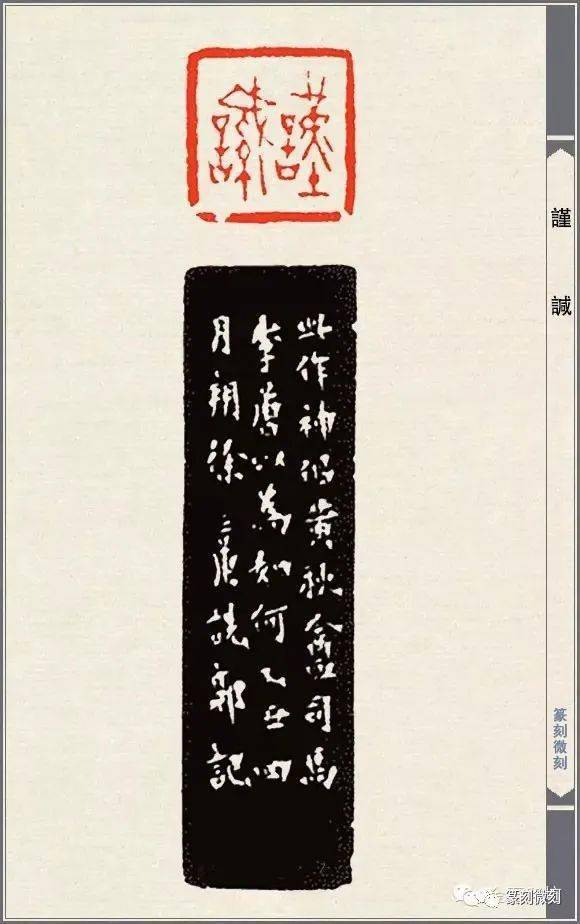 謹諴
此作神似黃秋盦司馬
以為如何乙丑四
月徐三庚詵郭記
謹
諴
篆刻微刻
篆刻微刻